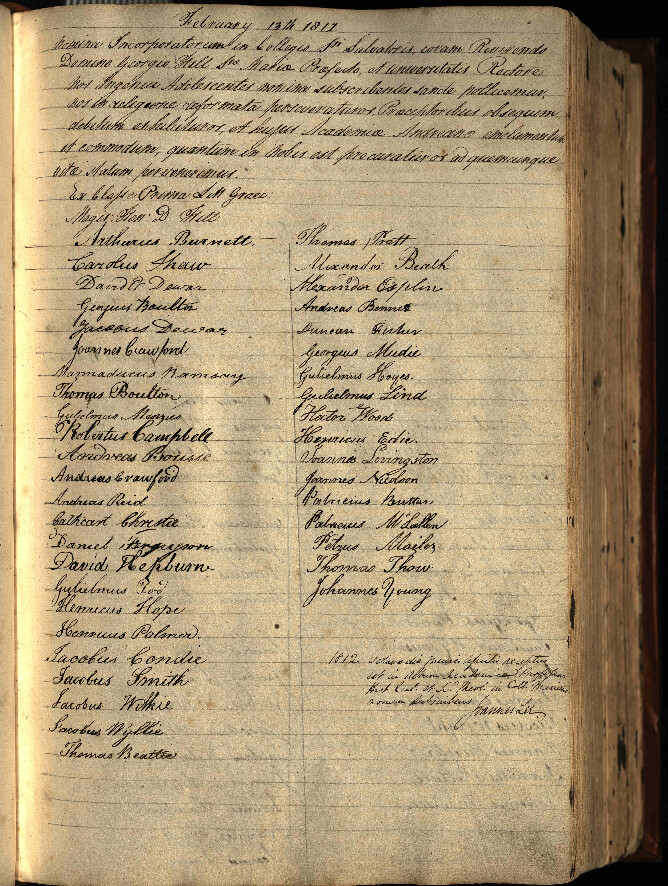 February 13th 1817
nomina Incorporatorum in Collegio Sti Salvatoris, coram Reverendo
Domino Georgio Hill Stae Mariae Praefecto, et universitatis Rectore
Nos Ingenui Adolescentes nomina subscribentes sancte pollicemur,
nos in religione reformata perseveraturos, Praeceptoribus obsequium
debitum exhibituros, et hujus Academiae Andreanae emolumentum
et commodum, quantum in nobis est procuraturos ad quemcunque
vitae statum pervenerimus.
Ex Classe Prima Litt Graec.
Magis: Hen: D Hill
Arthurus Burnett.
Carolus Shaw
David Dewar
Georgius Boulton
Jacobus Dewar
Joannes Crawford
Marmaducus Ramsay
Thomas Boulton
Gulielmus Menzies
Robertus Campbell
Andreas Bousie
Andreas Crawford
Andreas Reid
Cathcart Christie
Daniel Ferguson
David Hepburn
Gulielmus
Henricus Hope
Henricus Palmer.
Jacobus Condie
Jacobus Smith
Jacobus Wilkie
Jacobus Wyllie
Thomas Beattie
Thomas Pratt
Alexander Beath
Alexander Esplin
Andreas Bennet
Duncan
Georgius Mudie
Gulielmus Hoyes.
Gulielmus Lind
Hector Wood
Henricus Edie.
Joannes Levingston
Joannes Neilson
Patricius
Patricius
Petrus
Thomas Thow
Johannes Young
1812.
est in album
in Coll. Mariano
nomen subscribens
Joannes Lee